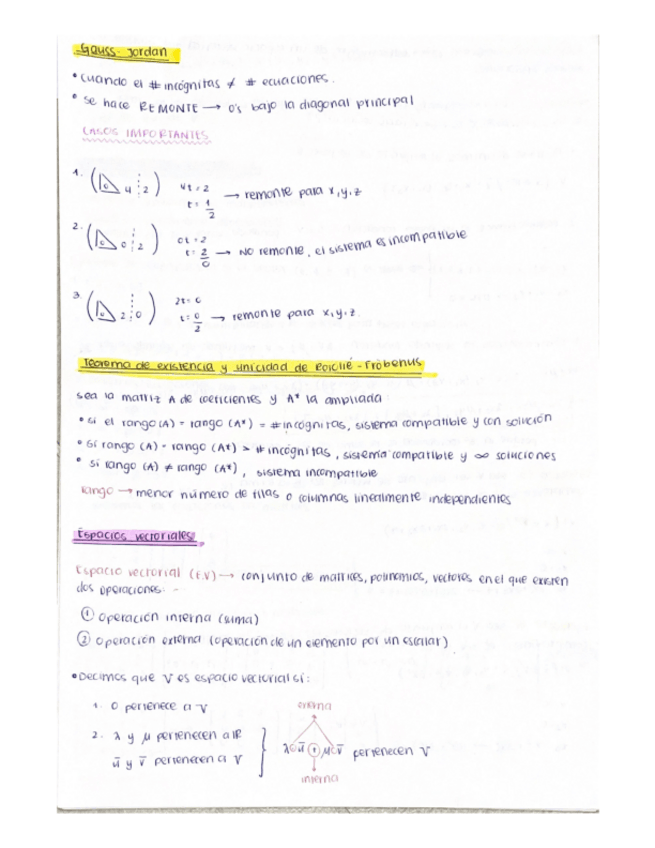 -Gauss-Jordan
• cuando el # incógnitas ≠ # ecuaciones.
• se hace REMONTE → 0's bajo la diagonal principal
CASOS IMPORTANTES
1. ( 0 4 ⋮ 2 ) 4t = 2
t = 1/2 → remonte para x,y,z
2. ( 0 0 ⋮ 2 ) 0t = 2
t = 2/0 → NO remonte, el sistema es incompatible
3. ( 0 2 ⋮ 0 ) 2t = 0
t = 0/2 → remonte para x,y,z.
Teorema de existencia y unicidad de Roiché-Fröbenus
sea la matriz A de coeficientes y A* la ampliada
• si el rango(A) = rango (A*) = # incógnitas, sistema compatible y con solución
• si rango (A) = rango (A*) > # incógnitas, sistema compatible y ∞ soluciones
• si rango (A) ≠ rango (A*), sistema incompatible
rango → menor número de filas o columnas linealmente independientes
Espacios vectoriales.
Espacio vectorial (E.V) → conjunto de matrices, polinomios, vectores en el que existen
dos operaciones:
① operación interna (suma)
② operación externa (operación de un elemento por un escalar)
• Decimos que V es espacio vectorial si:
1. 0 pertenece a V
2. λ y μ pertenecen a IR
ū y v̄ pertenecen a V
externa
λ⊙ū ⊕ μ⊙v̄ pertenecen V
interna